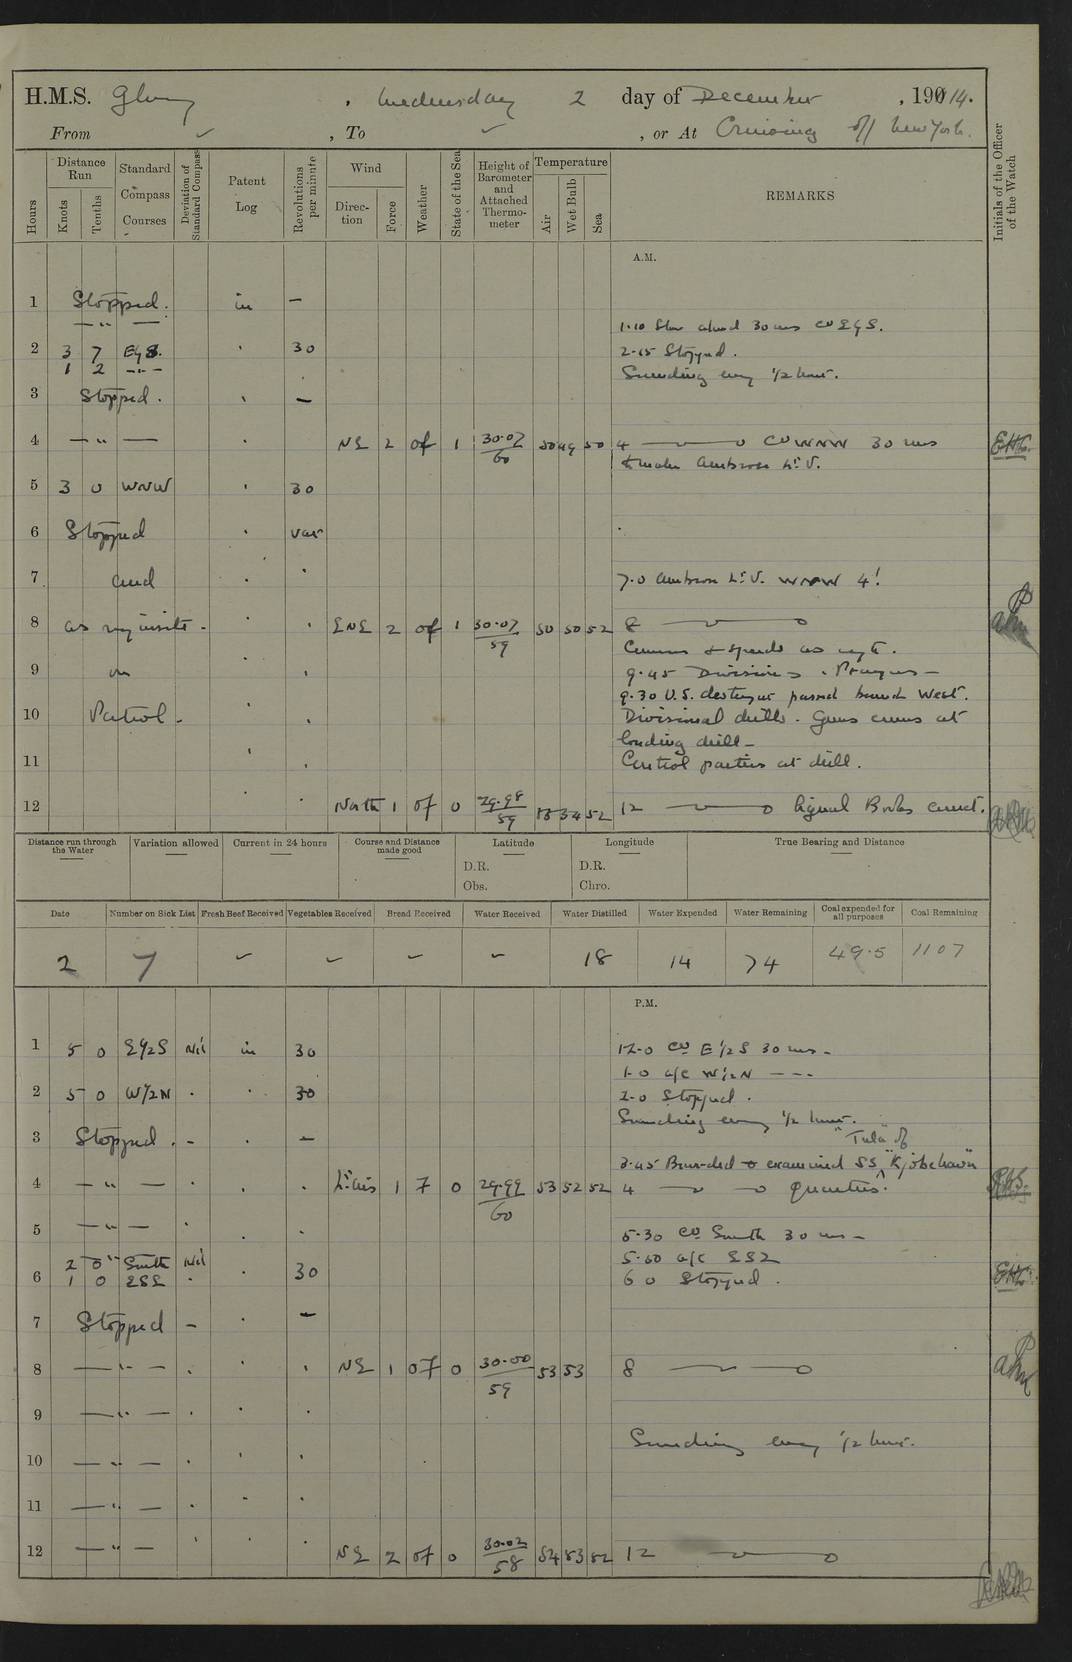 H.M.S. Glory , Wednesday 2 day of December , 1914.
From ✓ , To ✓ , or At Cruising off New York.
Hours
Distance Run
Knots
Tenths
Standard Compass Courses
Deviation of Standard Compass
Patent Log
Revolutions per minute
Wind
Direction
Force
Weather
State of the Sea
Height of Barometer and Attached Thermometer
Temperature
Air
Wet Bulb
Sea
REMARKS
Initials of the Officer of the Watch
A.M.
1 Stopped. in —
— " — 1.10 Slow ahead 30 revs Co E y S.
2 3 7 E y S. 30 2.15 Stopped.
1 2 — " — Sounding every 1/2 hour.
3 Stopped. —
4 — " — NE 2 of 1 30.07 60 50 49 50 4 Co WNW 30 revs EHG.
to make Ambrose Lt. V.
5 3 0 WNW 30
6 Stopped var
7 and 7.0 Ambrose Lt. V. WNW 4'
8 as requisite. ENE 2 of 1 30.07 59 50 50 52 8
Courses & speeds as reqte.
9 on 9.45 Divisions . Prayers —
9.30 U.S. destroyer passed bound West.
10 Patrol. Divisional drills. Guns crews at
loading drill —
11 Control parties at drill.
12 North 1 of 0 29.98 59 52 12 Signal Books correct.
Distance run through the Water
Variation allowed
Current in 24 hours
Course and Distance made good
Latitude
D.R.
Obs.
Longitude
D.R.
Chro.
True Bearing and Distance
Date Number on Sick List Fresh Beef Received Vegetables Received Bread Received Water Received Water Distilled Water Expended Water Remaining Coal expended for all purposes Coal Remaining
2 7 ✓ ✓ ✓ ✓ 18 14 74 49.5 1107
P.M.
1 5 0 E 1/2 S Nil in 30 12.0 Co E 1/2 S 30 revs —
1.0 a/c W 1/2 N — — —
2 5 0 W 1/2 N 30 2.0 Stopped.
Sounding every 1/2 hour.
3 Stopped. — —
"Tula" of
3.45 Boarded & examined SS "Kjobehavn"
4 — " — Lt. airs 1 7 0 29.99 60 53 52 52 4 Quarters. RHS.
5 — " — 5.30 Co South 30 revs —
2 0 South Nil 5.50 a/c ESE
6 1 0 ESE 30 6 0 Stopped. EHG.
7 Stopped — —
8 — " — NE 1 of 0 30.00 59 53 53 8
9 — " —
Sounding every 1/2 hour.
10 — " —
11 — " —
12 — " — NE 2 of 0 30.02 58 54 53 52 12